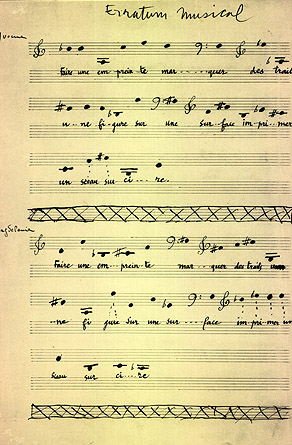 Erratum Musical
Yvonne
faire une em-prein-te mar---quer des trait
u-ne fi-gure sur une sur-face im-pri-mer
un sceau sur ci---re.
agdeleine
Faire une em--prein-te mar---quer des traits
--ne fi gure sur une sur----face im-pri mer un
sceau sur ci---re